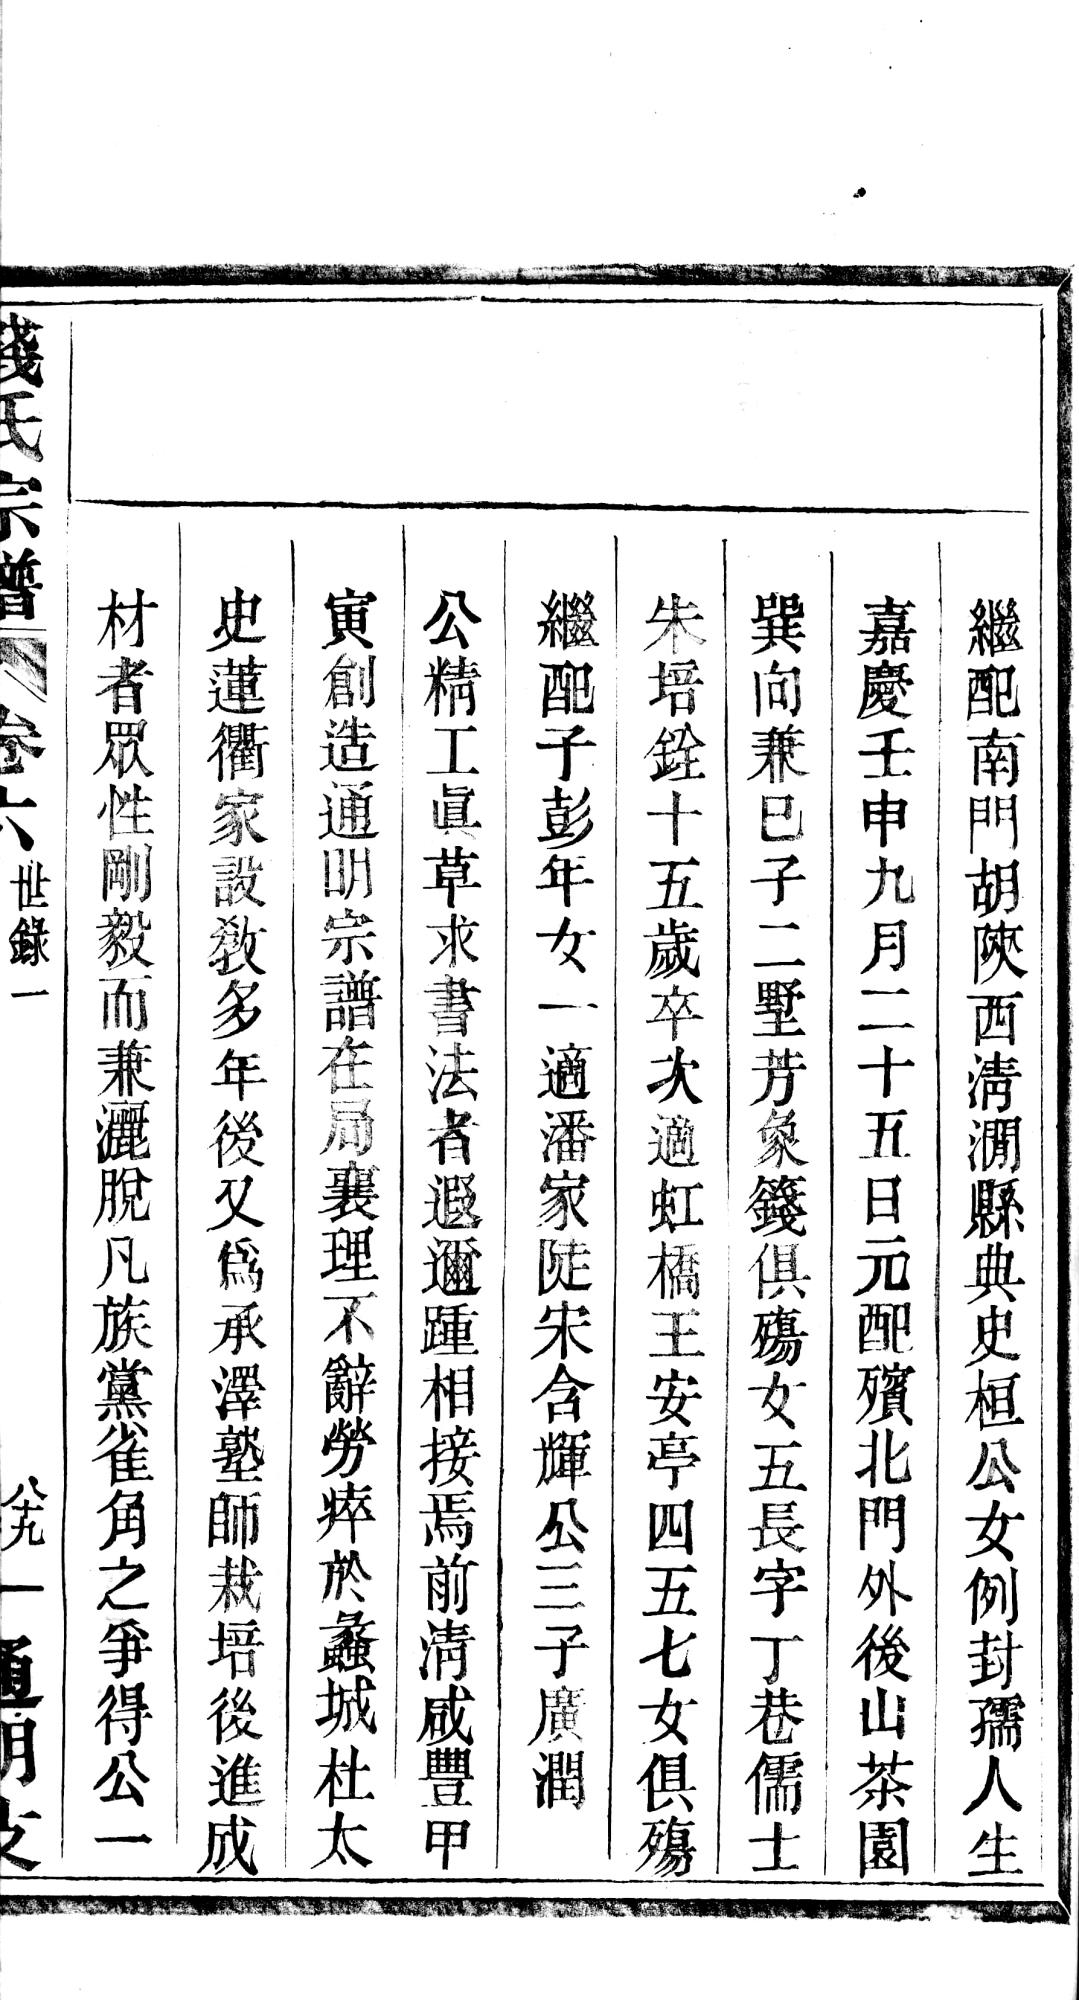 繼配南門胡陝西清澗縣典史桓公女例封孺人生
嘉慶壬申九月二十五日元配殯北門外後山茶園
巽向兼巳子二墅芳象籛俱殤女五長字丁巷儒士
朱培銓十五歲卒次適虹橋王安亭四五七女俱殤
繼配子彭年女一適潘家陡宋含輝公三子廣潤
公精工眞草求書法者遐邇踵相接焉前淸咸豐甲
寅創造通明宗譜在局襄理不辭勞瘁於蠡城杜太
史蓮衢家設敎多年後又爲承澤塾師栽培後進成
材者眾性剛毅而兼灑脫凡族黨雀角之爭得公一
錢氏宗譜
卷六
世錄一
八十九
通明支